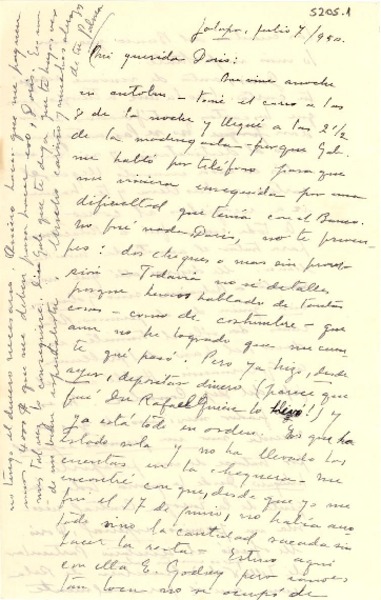 5205.1
Jalapa, julio 7/950.
Mi querida Doris:
Me vine anoche
en autobus - tomé el carro a las
8 de la noche y llegué a las 2 1/2
de la madrugada - porque Gab.
me habló por teléfono para que
me viniera enseguida por una
dificultad que tenía con el Banco.
No fué nada Doris, no te preocu-
pes: dos cheques o mas sin provi-
sión - Todavía no sé detalles
porque hemos hablado de tantas
cosas - como de costumbre - que
aun no he logrado que me cuen
te qué pasó. Pero ya hizo, desde
ayer, depositar dinero (parece que
fué Don Rafael quien lo hizo!) y
ya está todo en orden. Es que ha
estado sola y no ha llevado las
cuentas en la chequera - me
encontré con que, desde que yo me
fuí el 17 de junio, no había ano
tado sino la cantidad sacada sin
hacer la resta - Estuvo aquí
con ella E. Godoy pero
tan loca no se ocupó de
no tengo el dinero necesario. Quiero hacer que me paguen
unos 4000 que me deben para hacer eso, Doris.
mas tal vez lo conseguiré. Dice Gab que te diga que te
de un
cariños y muchos
de tu Palma